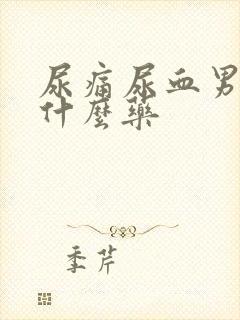 尿痛尿血男
什麼藥
季芹